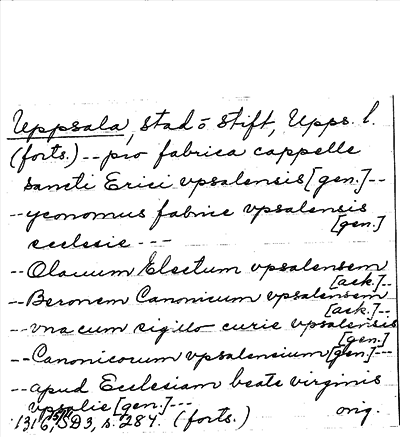 Uppsala, stad o stift, Upps. l.
(forts.) -- pro fabrica cappelle
sancti Erici vpsalensis [gen.] --
-- yconomus fabrice vpsalensis
[gen.]
ecclesie ---
-- Olauum Electum vpsalensem
[ack.] --
-- Beronem Canonicum vpsalensem
[ack.] --
-- vna cum sigillo curie vpsalensis
[gen.]
-- Canonicorum vpsalensium [gen.] ---
-- apud Ecclesiam beate virginis
vpsalie [gen.] ---
1316, SD3, s. 284. (forts.) orig.